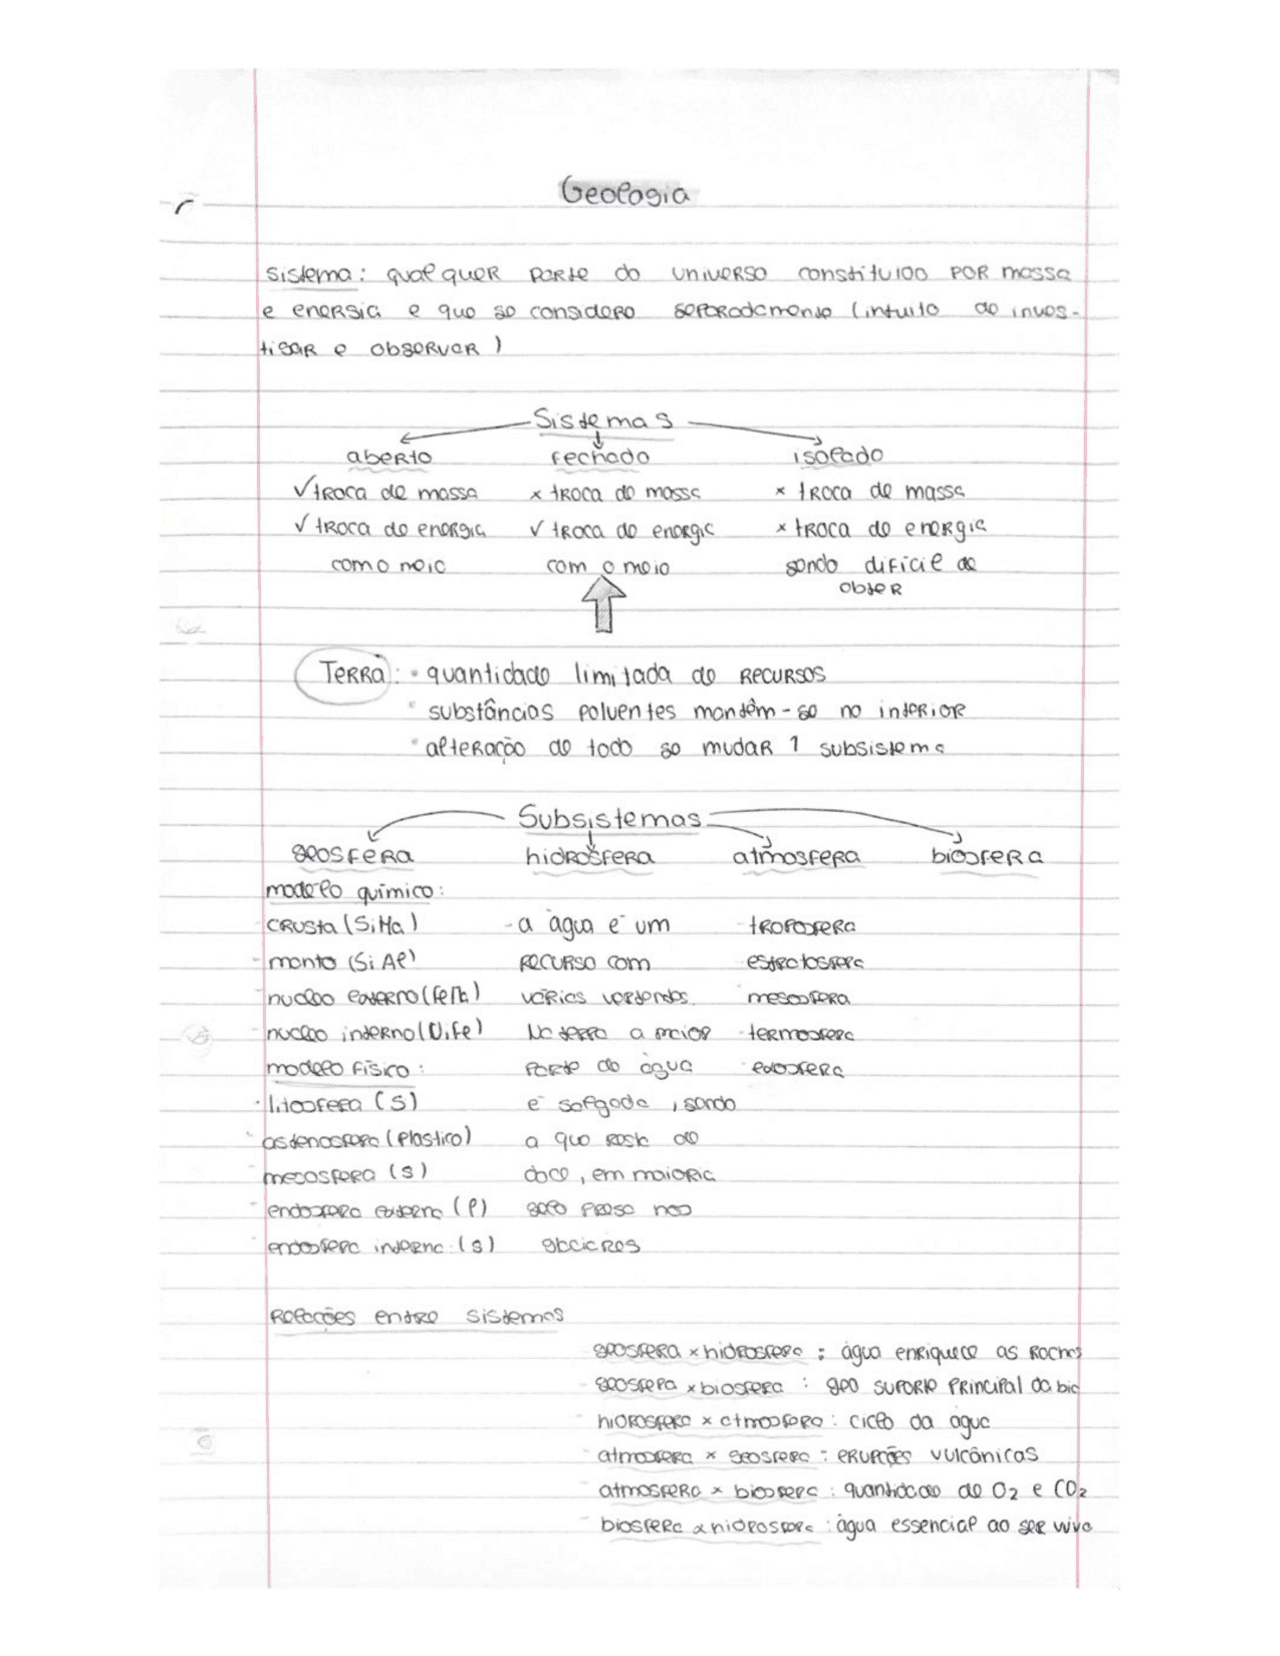 Geologia
sistema: qualquer parte do universo constituido por massa
e energia e que se considera separadamente (intuito de inves-
tigar e observar)
Sistemas
aberto fechado isolado
✓ troca de massa × troca de massa × troca de massa
✓ troca de energia ✓ troca de energia × troca de energia
com o meio com o meio sendo dificil de
obter
Terra: • quantidade limitada de recursos
• substâncias poluentes mantêm-se no interior
• alteração de todo se mudar 1 subsistema
Subsistemas
geosfera hidrosfera atmosfera biosfera
modelo químico:
- crusta (SiMa) - a água é um - troposfera
- manto (SiAl) recurso com - estratosfera
- nucleo externo várias vertentes. - mesosfera
- nucleo interno (NiFe) Na terra a maior - termosfera
modelo físico: parte da água - exosfera
- litosfera (s) é salgada, sendo
- astenosfera (plastico) a que resta de
- mesosfera (s) doce, em maioria
- endosfera externa (l) gelo preso nos
- endosfera interna (s) glaciares
Relações entre sistemas
geosfera × hidrosfera: água enriquece as rochas
- geosfera × biosfera: geo suporte principal da bio
- hidrosfera × atmosfera: ciclo da água
- atmosfera × geosfera: erupções vulcânicas
- atmosfera × biosfera: quantidade de O2 e CO2
- biosfera × hidrosfera: água essencial ao ser vivo